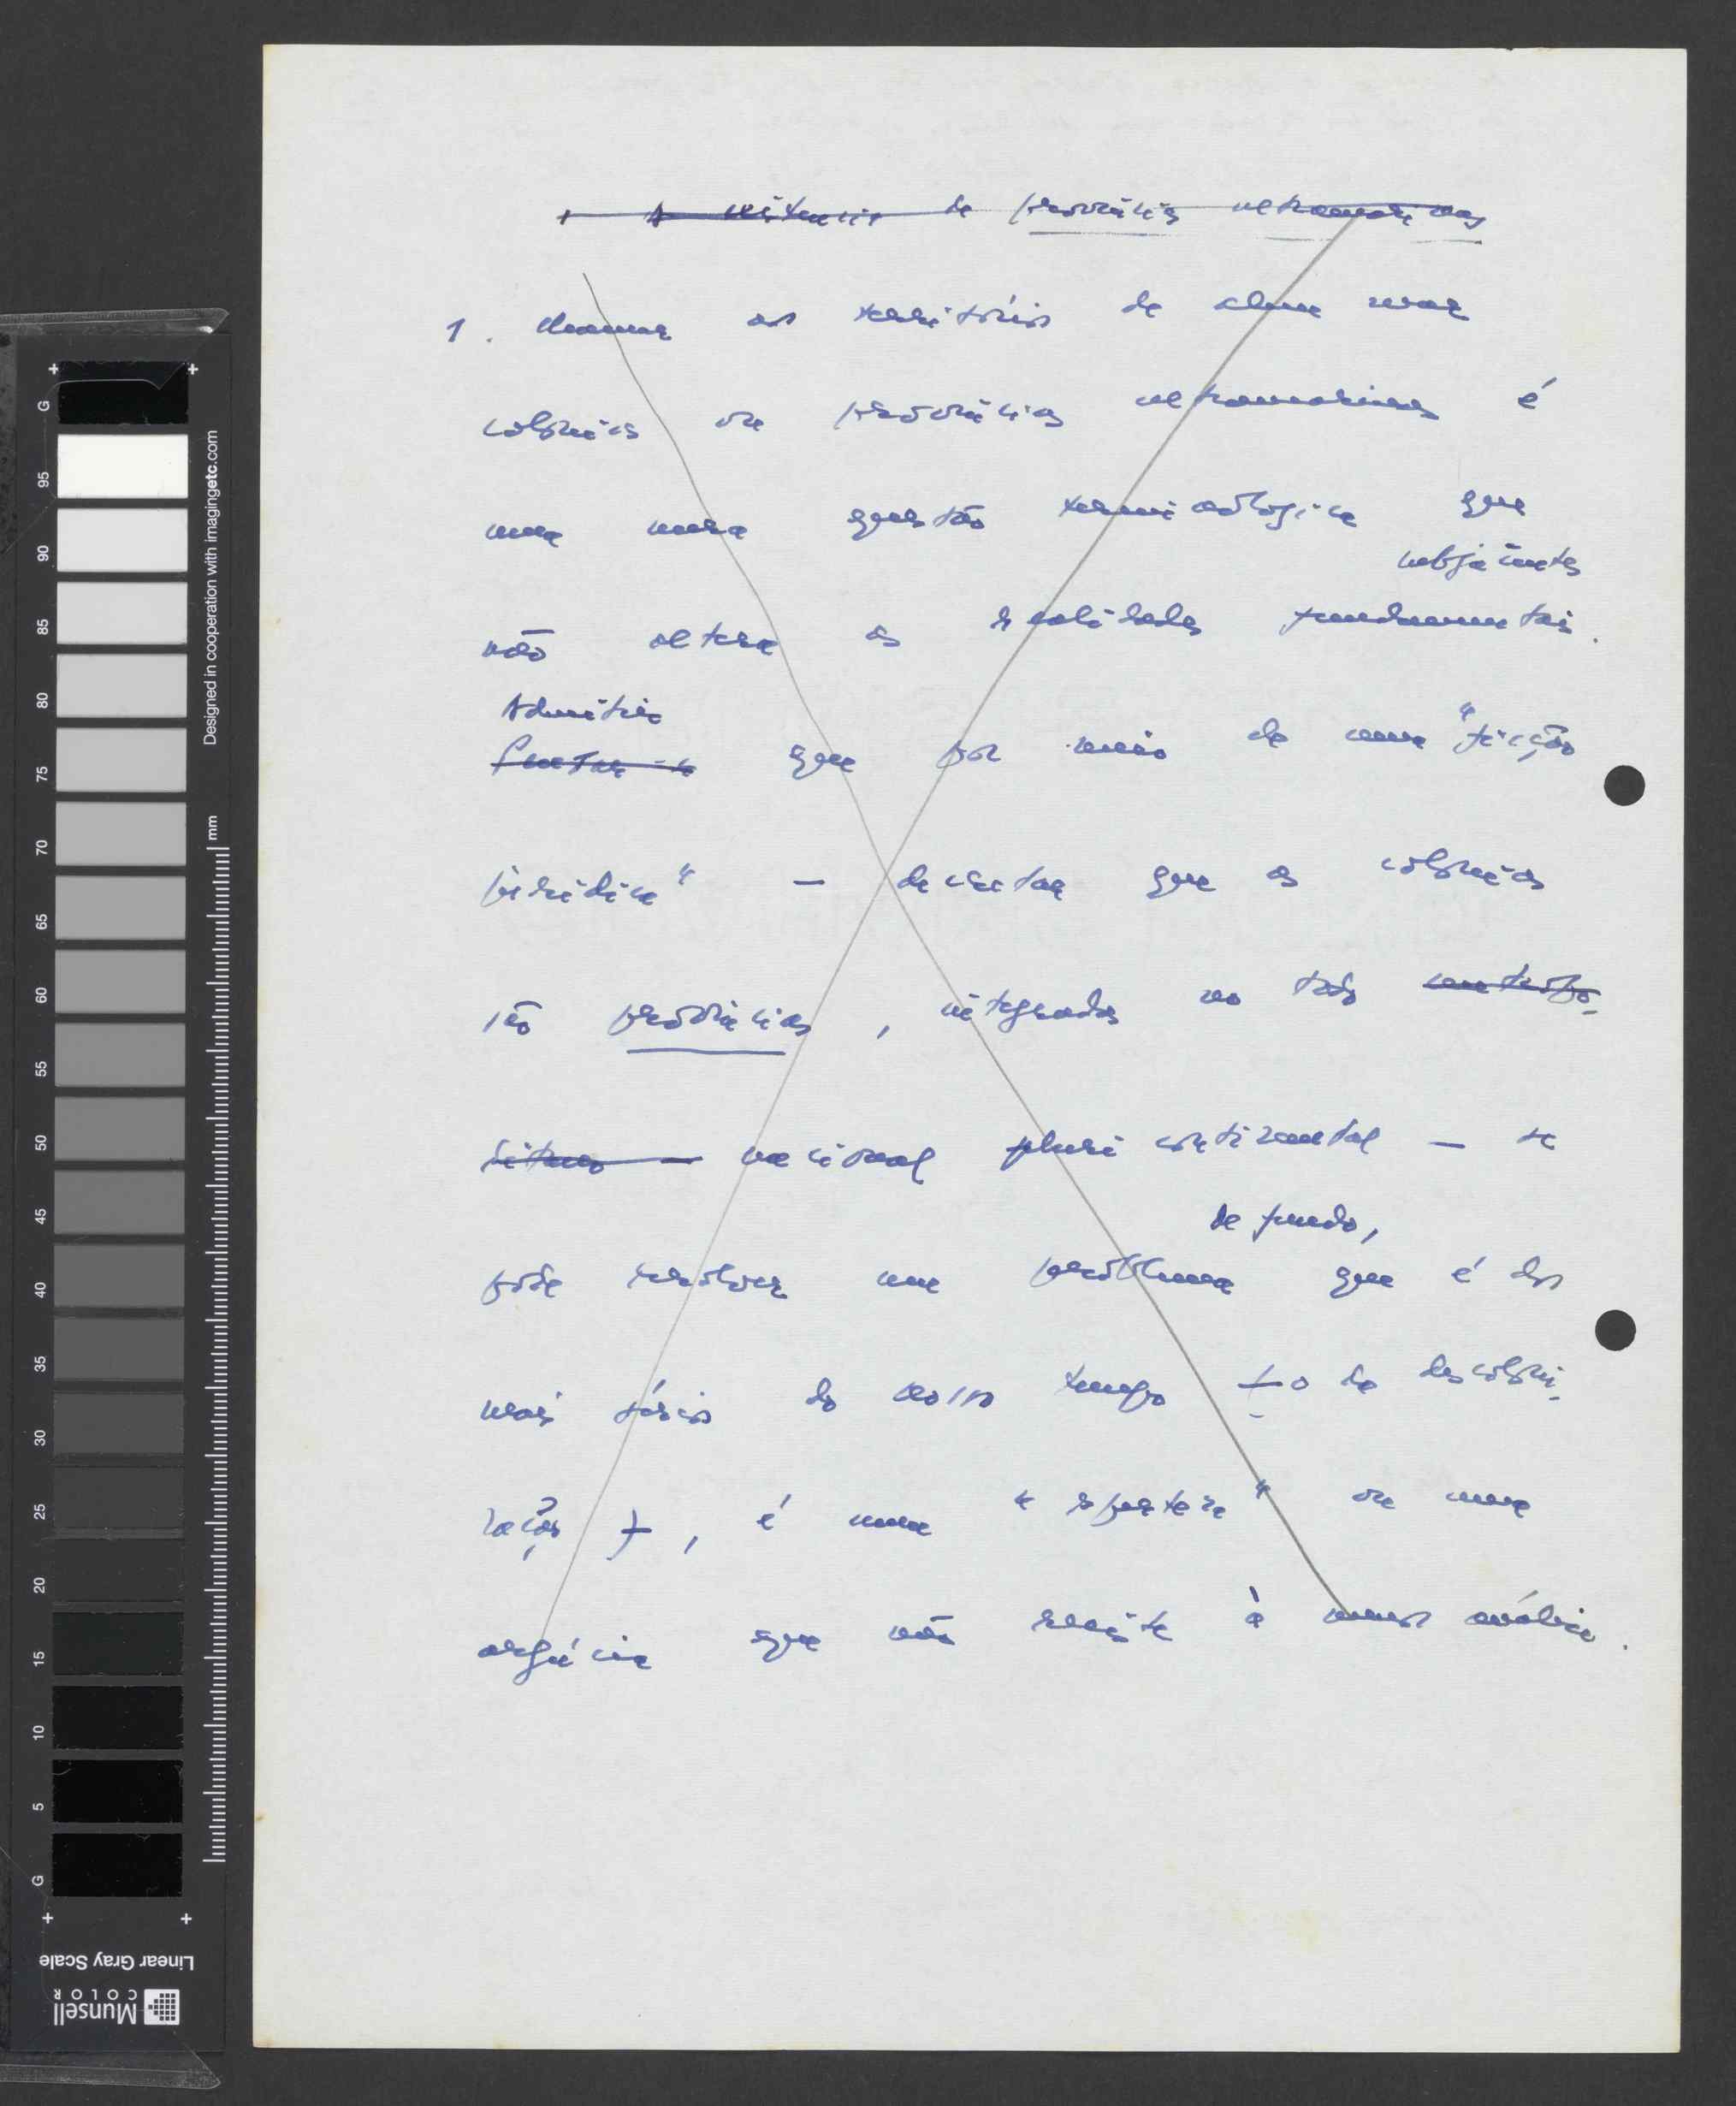 A existência de províncias ultramarinas
1. Chamar aos territórios de além mar
colónias ou províncias ultramarinas é
uma mera questão terminológica que
subjacentes
não altera as realidades fundamentais.
Admitir
que por meio de uma "ficção
jurídica" — decretar que as colónias
são províncias, integradas no todo
nacional pluricontinental — se
de fundo,
pode resolver um problema que é dos
mais sérios do nosso tempo — o da descoloni-
zação —, é uma "esperteza" ou uma
argúcia que não resiste à menor análise.
Designed in cooperation with imagingetc.com
mm
G 95 90 85 80 75 70 65 60 55 50 45 40 35 30 25 20 15 10 5 G
Linear Gray Scale
Munsell
COLOR